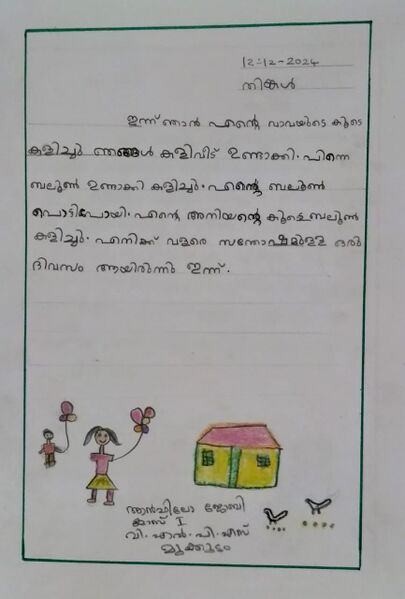 12-12-2024
തിങ്കൾ
ഇന്ന് ഞാൻ എന്റെ വാവയുടെ കൂടെ
കളിച്ചു ഞങ്ങൾ കളിവീട് ഉണ്ടാക്കി. പിന്നെ
ബലൂൺ ഉണ്ടാക്കി കളിച്ചു. എന്റെ ബലൂൺ
പൊട്ടിപോയി. എന്റെ അനിയന്റെ കൂടെ ബലൂൺ
കളിച്ചു. എനിക്ക് വളരെ സന്തോഷമുള്ള ഒരു
ദിവസം ആയിരുന്നു ഇന്ന്.
ജോബി
ക്ലാസ് I
വി. എൽ. പി. എസ്
മുക്കൂടം